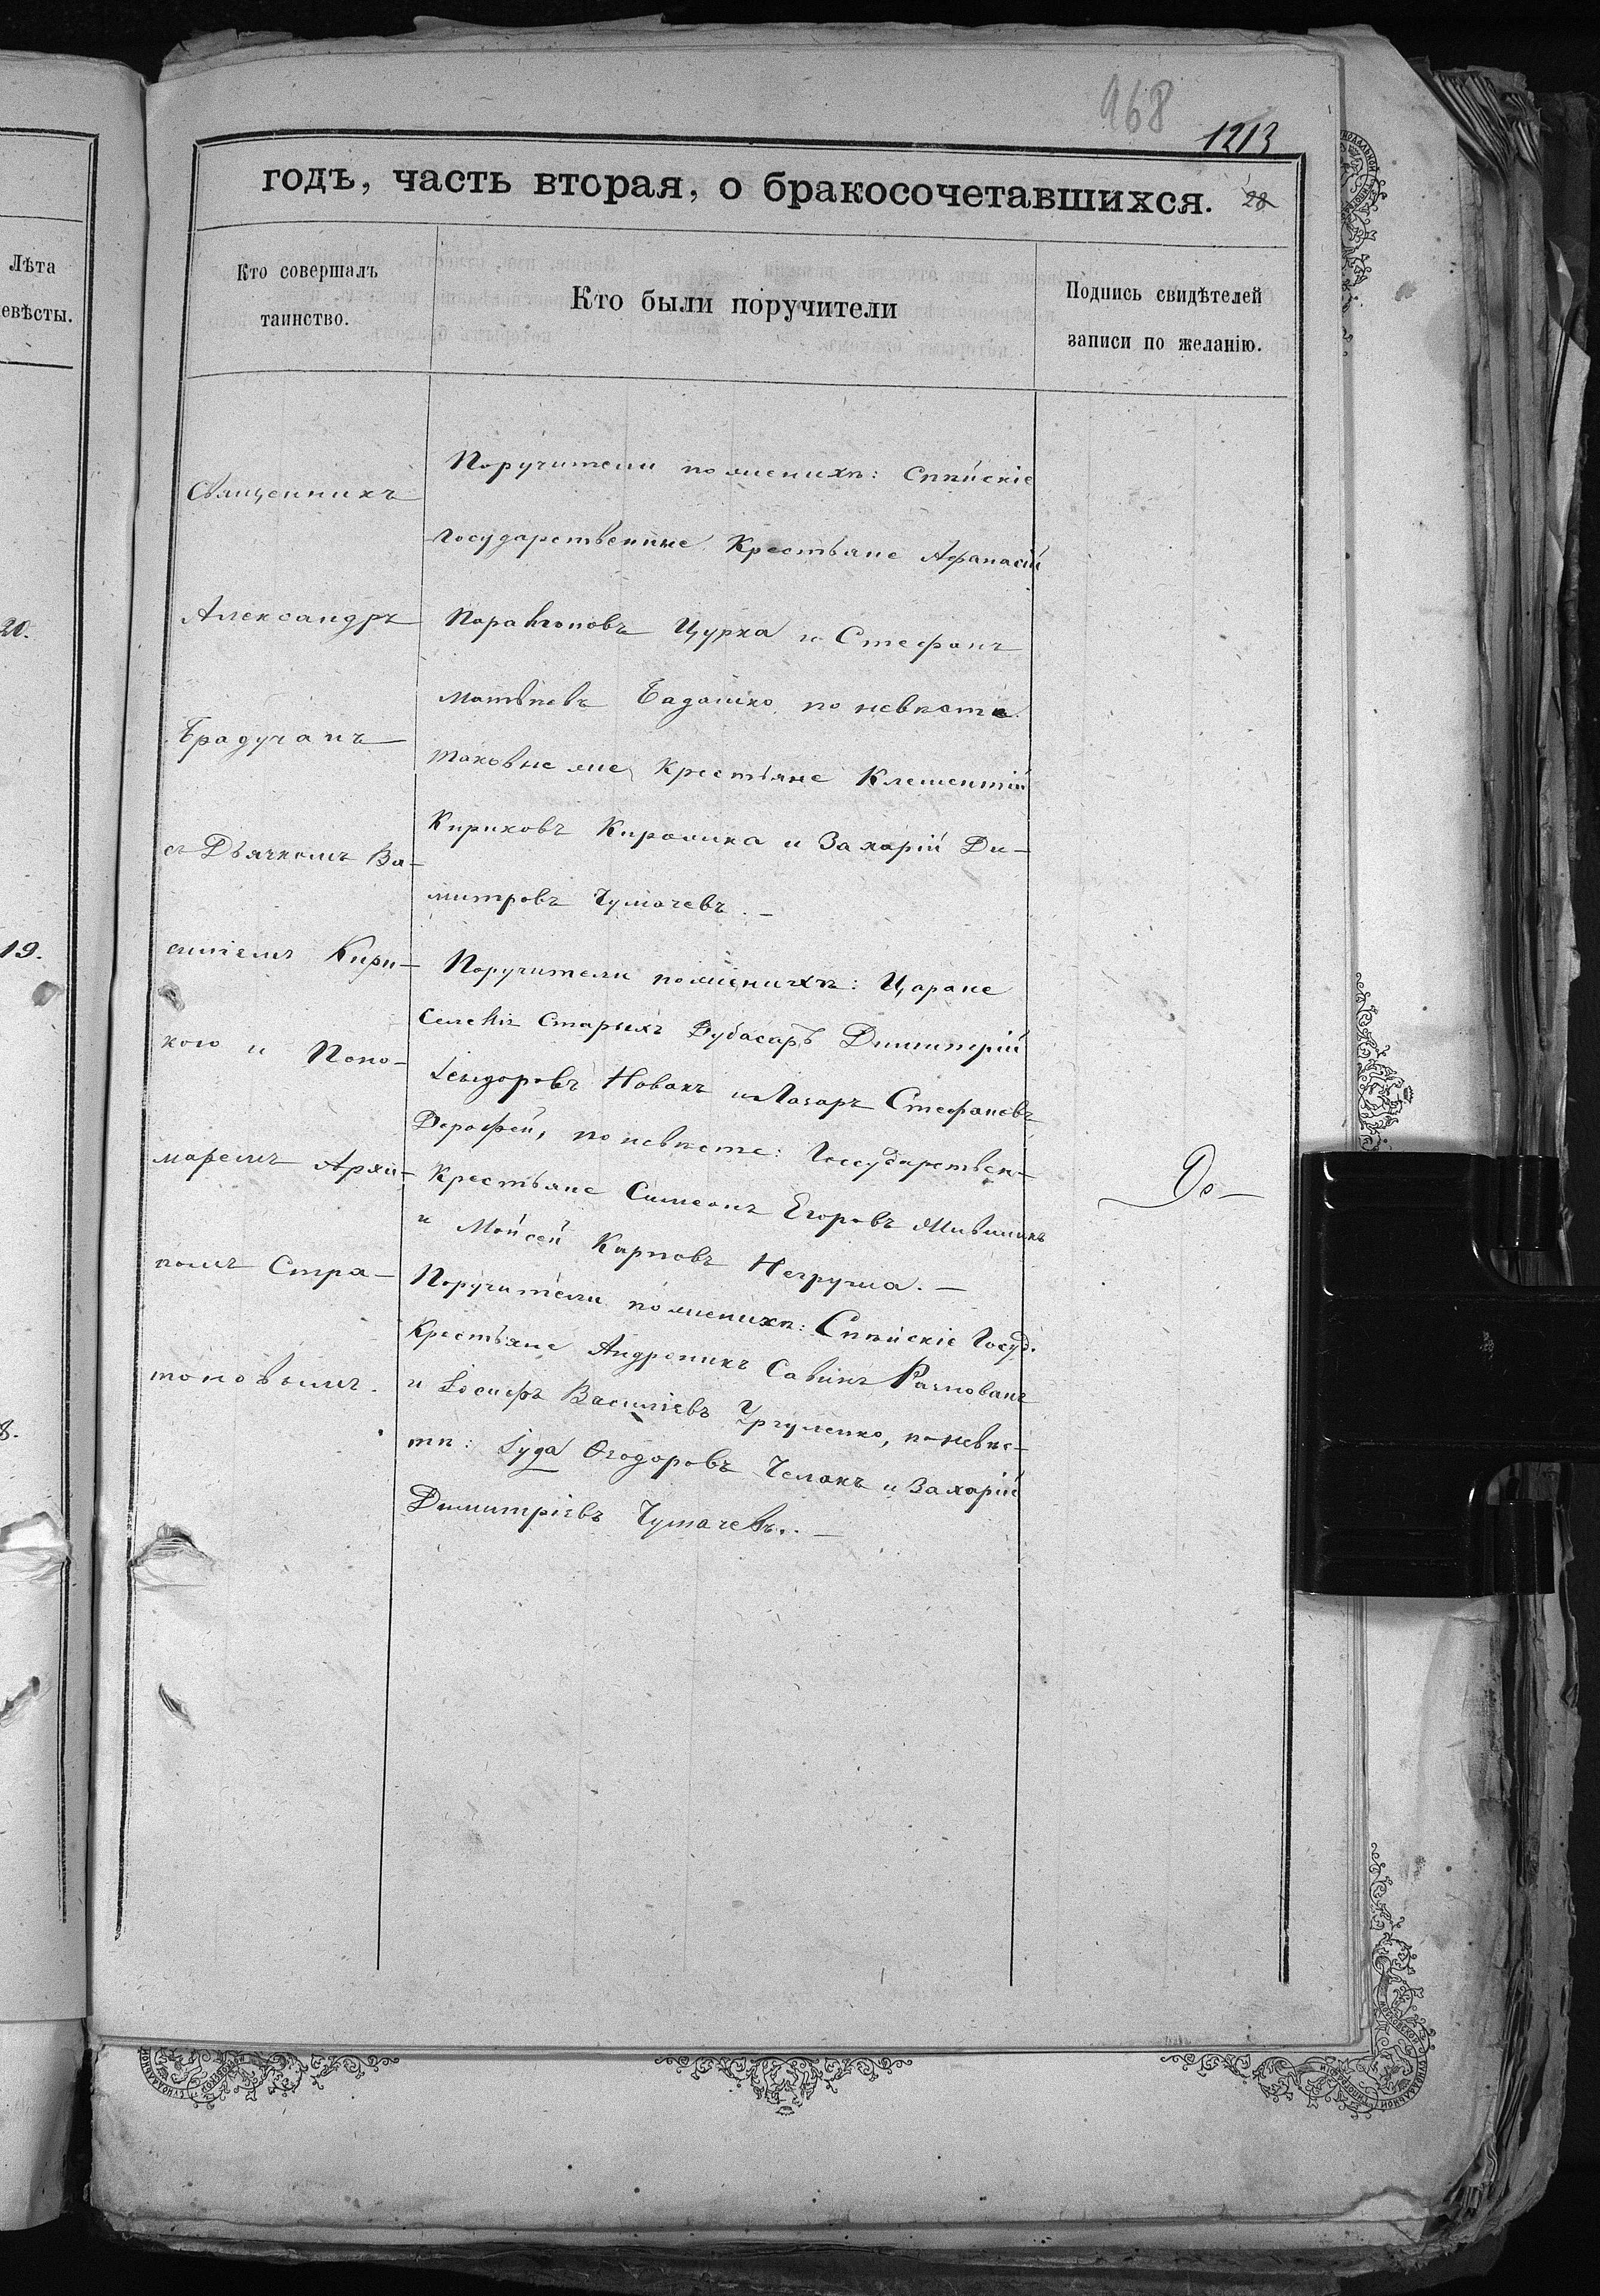 968
1213
годъ, часть вторая, о бракосочетавшихся. 28
Лѣта
евѣсты.
Кто совершалъ
таинство.
Кто были поручители
Подпись свидѣтелей
записи по желанію.
20.
19.
8.
Священникъ
Александръ
Брадучанъ
съ Дьячкомъ Ва-
силіемъ Кири-
кою и Поно-
маремъ Архи-
помъ Стра-
тоновымъ.
Поручители по женихѣ: Спѣйскіе
Государственные Крестьяне Афанасій
Цурка и Стефанъ
Матѣевъ Бадашко по невѣстѣ
таковые же Крестьяне Клементій
Кириковъ и Захарій Ди-
митровъ Чумачевъ. —
Поручители по женихѣ: Царане
Селенія Старыхъ Дубасаръ Димитрій
Ісидоровъ Новакъ и Лазаръ Стефановъ
Дорофей, по невѣсте: Государствен-
Крестьяне Симеонъ Егоровъ
и Мойсей Карповъ Негруша. —
Поручители по женихѣ: Спѣйскіе Госуд.
Крестьяне Андроникъ Савинъ
и Іосифъ Василіевъ Ургуленко, по невѣс-
тѣ: Іуда Ѳеодоровъ Челакъ и Захарій
Димитріевъ Чумачевъ. —
До —